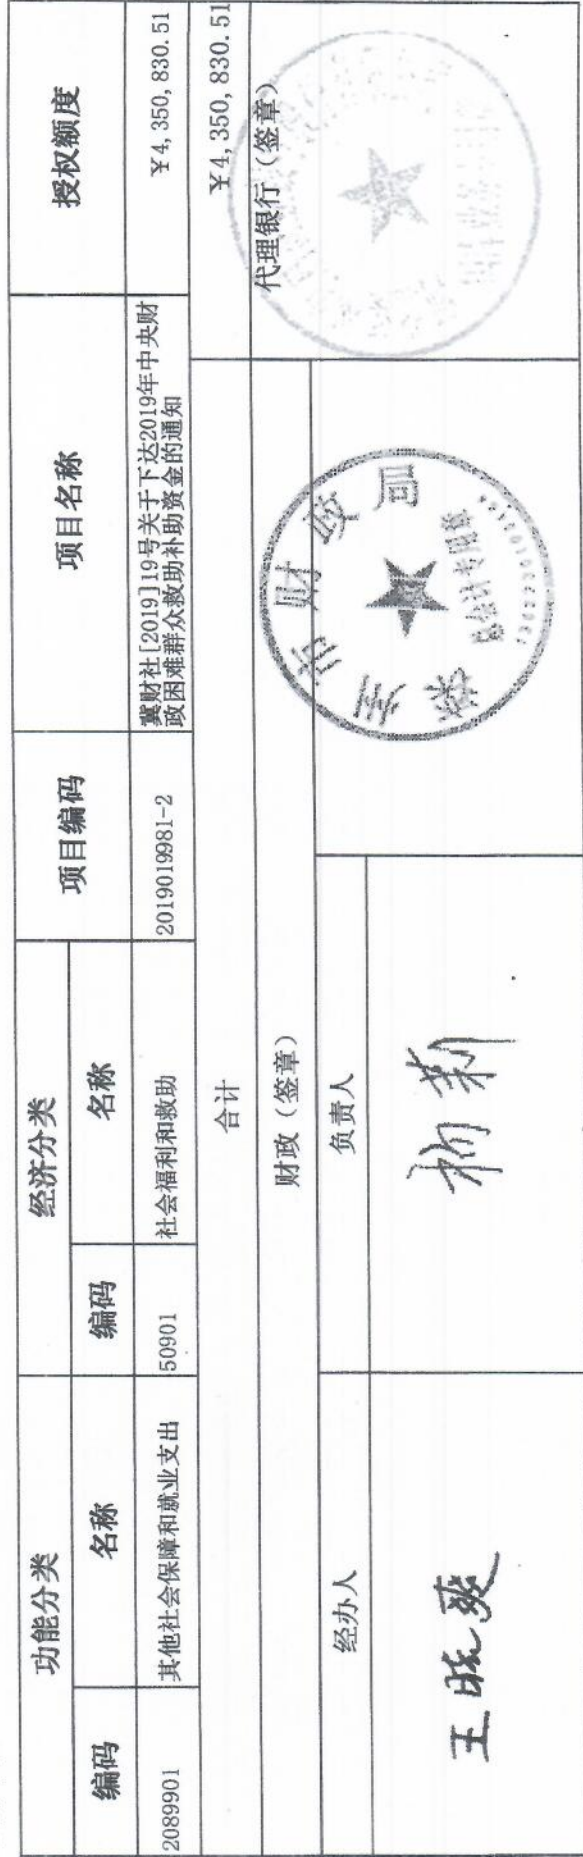 功能分类 经济分类 项目编码 项目名称 授权额度
编码 名称 编码 名称
2089901 其他社会保障和就业支出 50901 社会福利和救助 2019019981-2 冀财社[2019]19号关于下达2019年中央财
政困难群众救助补助资金的通知 ¥4,350,830.51
合计 ¥4,350,830.51
财政（签章） 代理银行（签章）
经办人 负责人
王晓爽
市财政局